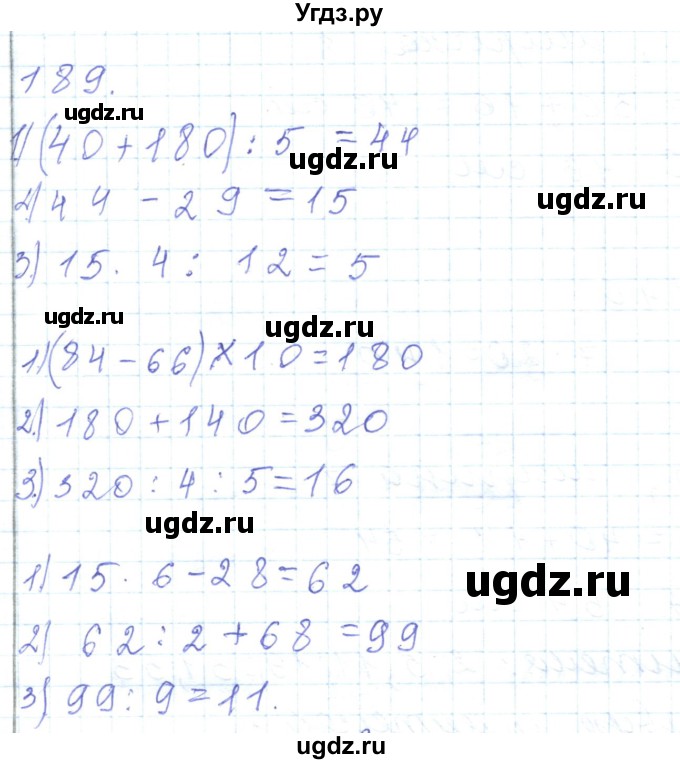 Угдз.ру
189.
ugdz.ru
1) (40 + 180) : 5 = 44
ugdz.ru
2) 44 - 29 = 15
ugdz.ru
3.) 15 . 4 : 12 = 5
ugdz.ru
ugdz.ru
1.) (84 - 66) × 10 = 180
2.) 180 + 140 = 320
3.) 320 : 4 : 5 = 16
ugdz.ru
1) 15 . 6 - 28 = 62
ugdz.ru
2) 62 : 2 + 68 = 99
3) 99 : 9 = 11.
ugdz.ru